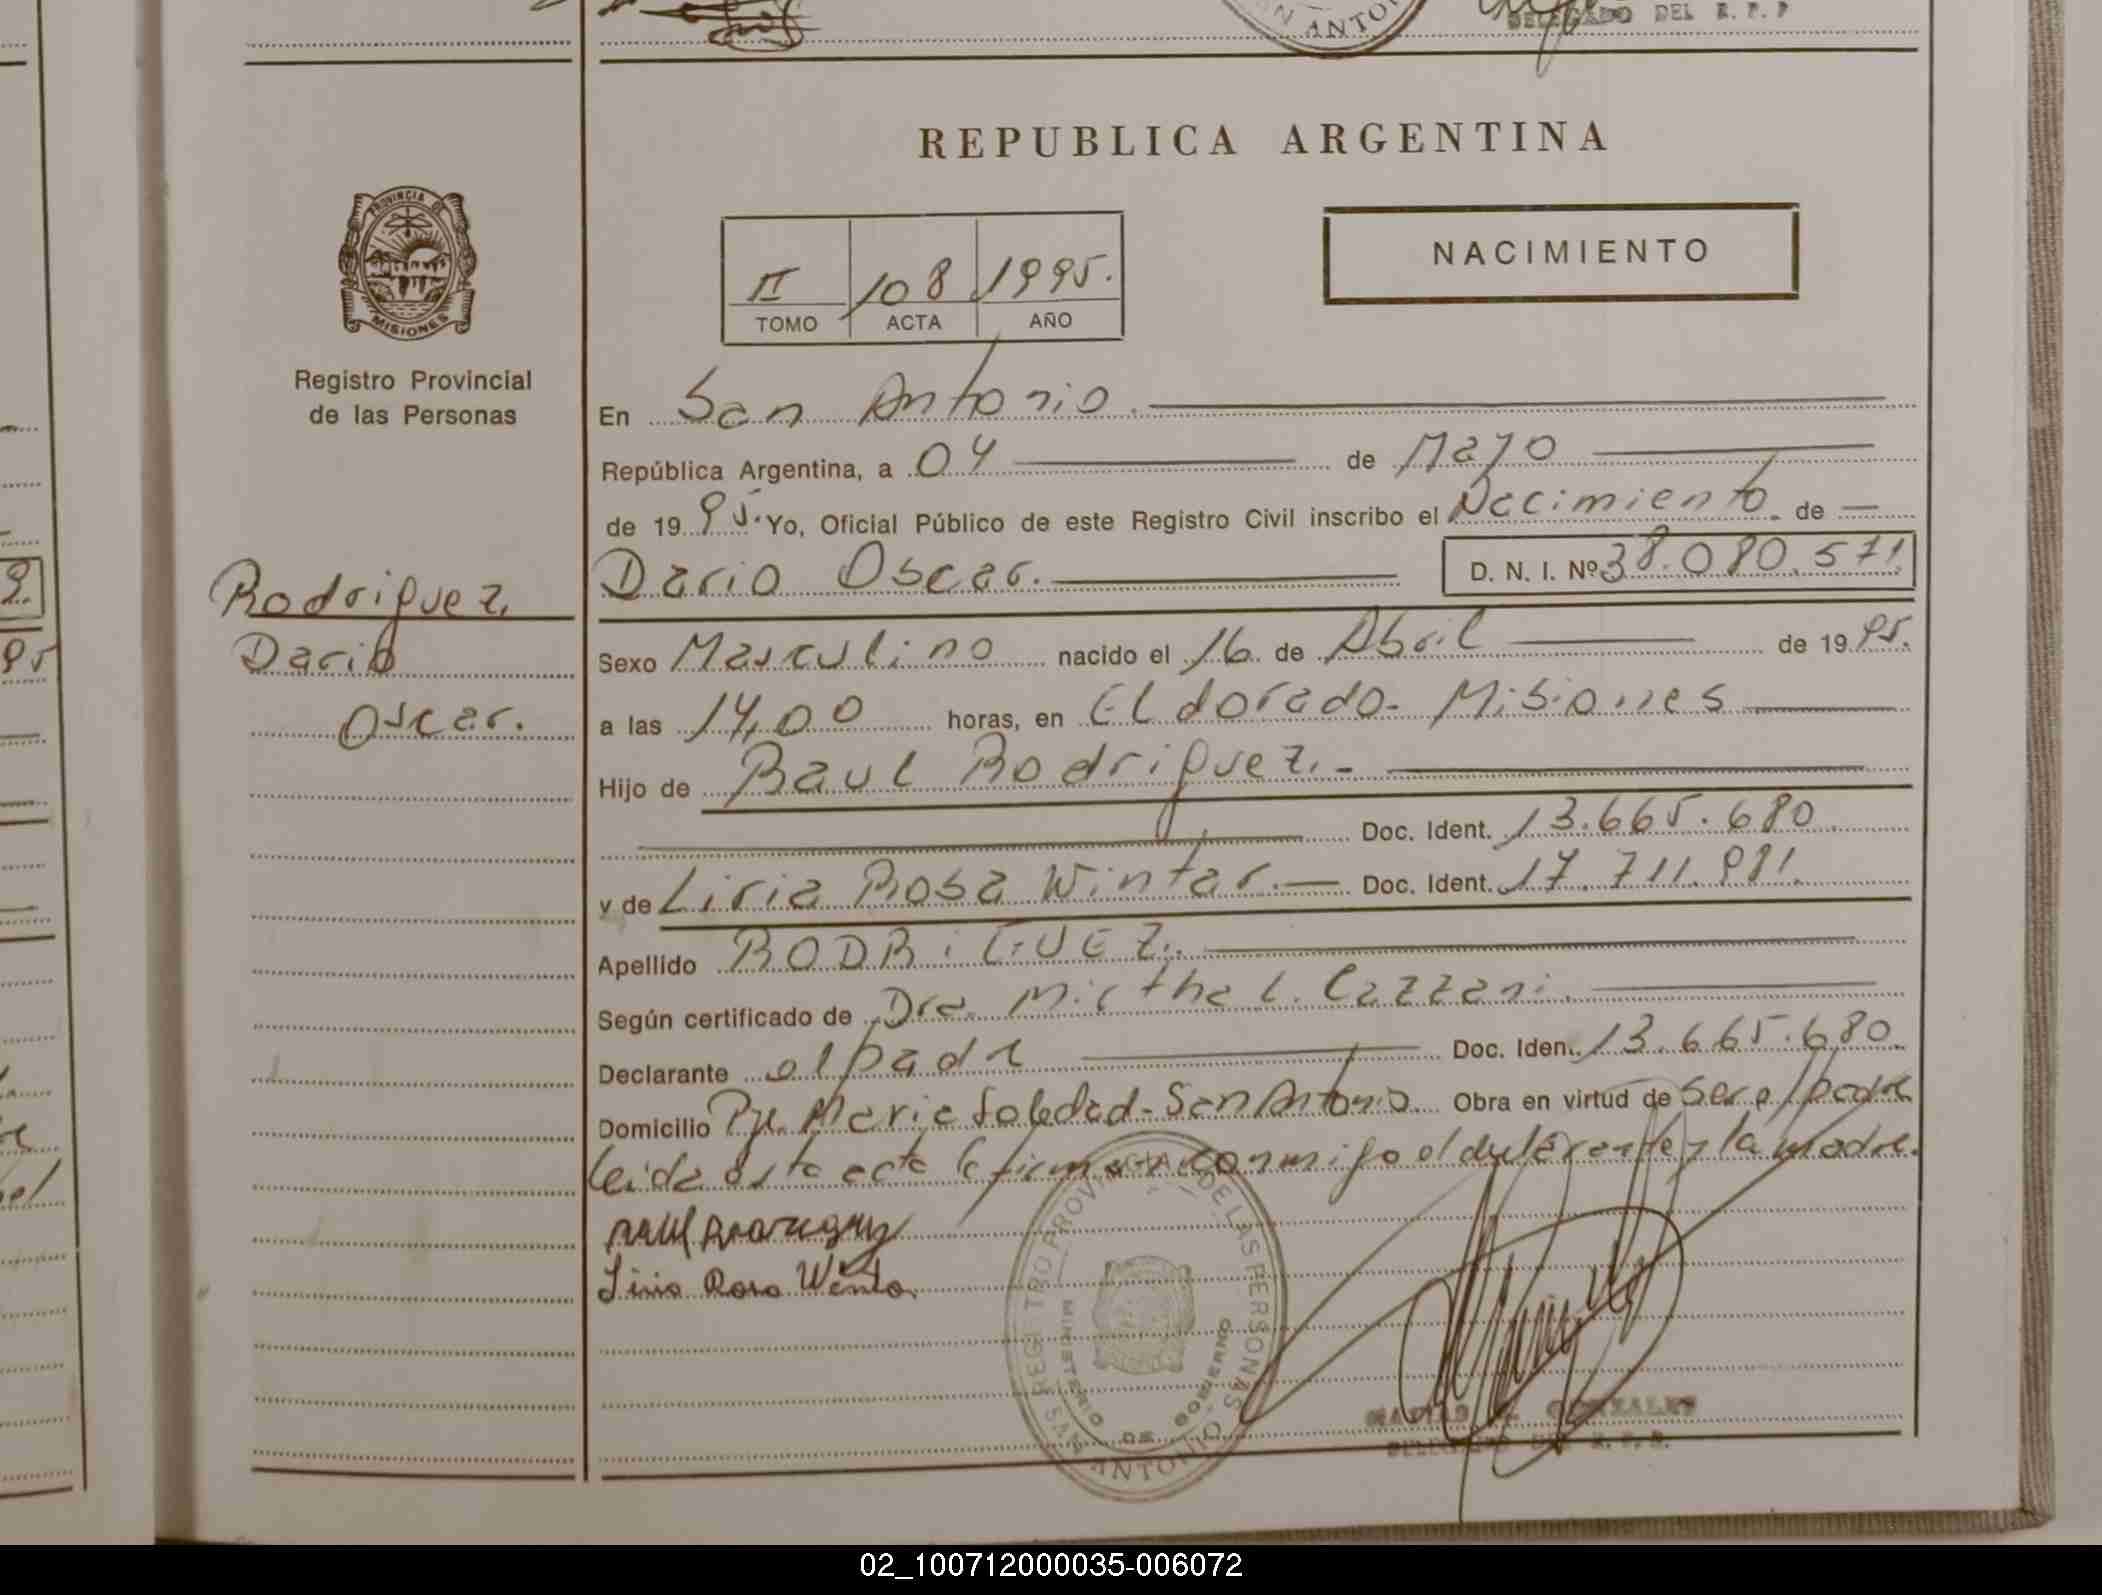 DELEGADO DEL R. P. P
REPUBLICA ARGENTINA
PROVINCIA DE
MISIONES
NACIMIENTO
II 108 1995.
TOMO ACTA AÑO
Registro Provincial
de las Personas
En San Antonio.
República Argentina, a 04 de Mayo
de 19 95. Yo, Oficial Público de este Registro Civil inscribo el Nacimiento. de
Dario Oscar. D. N. I. Nº 38.080.571.
Rodriguez.
Dario
Oscar.
Sexo Masculino nacido el 16 de Abril de 19 95.
a las 14,00 horas, en Eldorado - Misiones
Hijo de Raul Rodriguez.-
Doc. Ident. 13.665.680
y de Liria Rosa Wintar.- Doc. Ident. 17.711.981.
Apellido RODRiGUEZ.
Según certificado de Dra. Mirtha L. Cazzani.
Declarante el padre Doc. Iden. 13.665.680.
Domicilio Pje. Maria Soledad - San Antonio Obra en virtud de ser el padre
leida esta acta la firman conmigo el declarante y la madre.
Raul Rodriguez
Liria Rosa Winta
REGISTRO PROVINCIAL DE LAS PERSONAS
MINISTERIO DE GOBIERNO
SAN ANTONIO
GONZALES
DELEGADO DEL R. P. P.
02_100712000035-006072